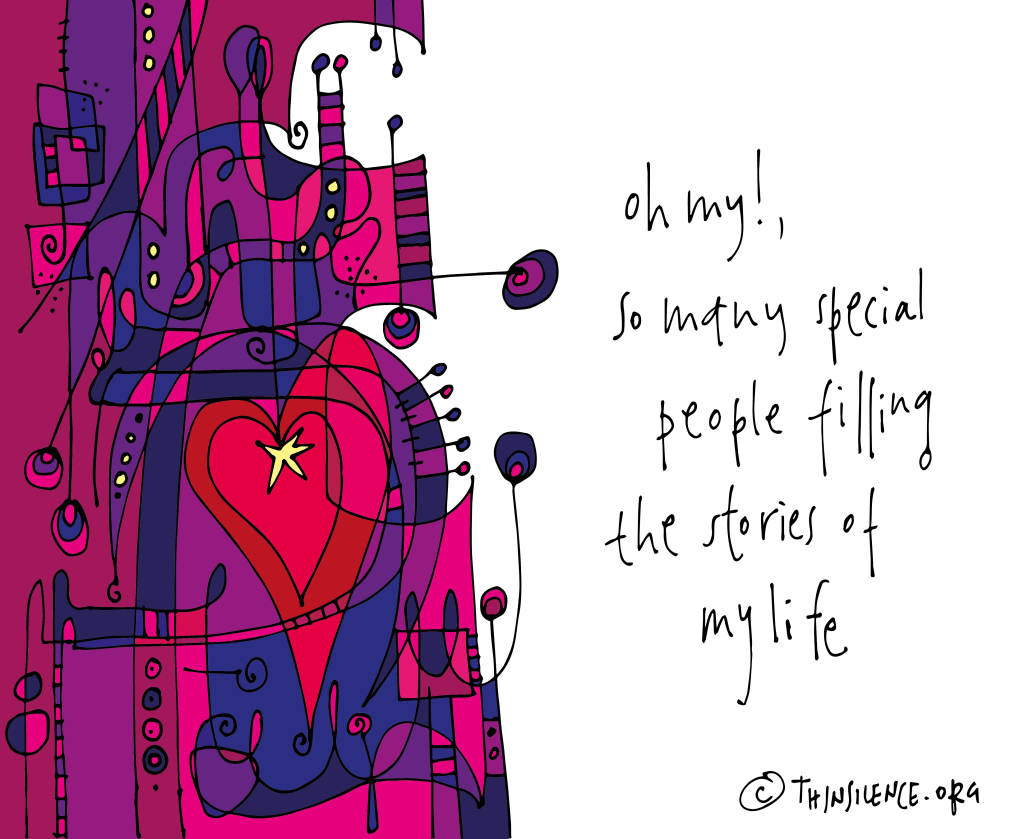 oh my!,
so many special
people filling
the stories of
my life
© THINSILENCE.ORG